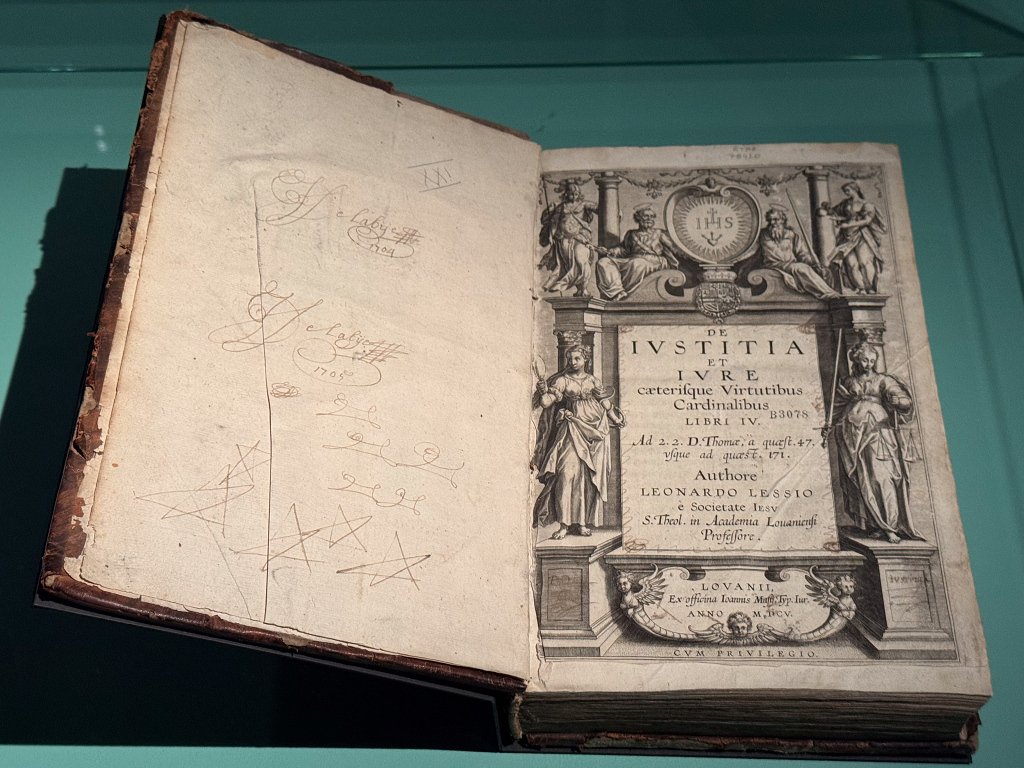 XXI
Delabye
1704
Delabye
1705
IHS
DE
IVSTITIA
ET
IVRE
cæteriſque Virtutibus
Cardinalibus
B3078
LIBRI IV.
Ad 2. 2. D. Thomæ, à quæst. 47.
vſque ad quæst. 171.
Authore
LEONARDO LESSIO
è Societate IESV
S. Theol. in Academia Louanienſi
Profeſſore.
LOVANII,
Ex officina Ioannis Maſij, Typ. Iur.
ANNO M.DCV.
CVM PRIVILEGIO.